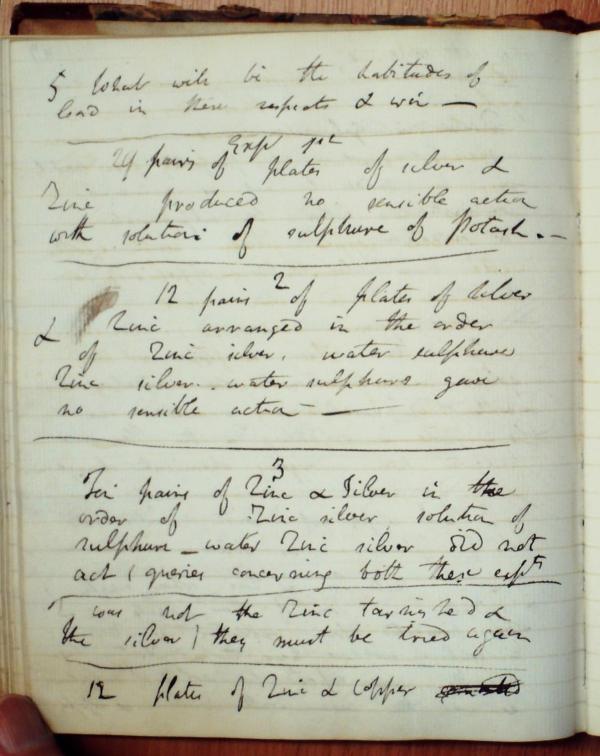 5 What will be the habitudes of
lead in these respects & iron —
Expt 1st
29 pairs of plates of silver &
Zinc produced no sensible action
with solution of sulphure of Potash. —
2
12 pairs of plates of silver
& Zinc arranged in the order
of Zinc silver, water sulphure
Zinc silver. water sulphure gave
no sensible action —
3
Ten pairs of Zinc & Silver in the
order of Zinc silver solution of
sulphure — water Zinc silver did not
act (queries concerning both these expts
was not the Zinc tarnished &
the silver) they must be tried again
12 plates of Zinc & Copper